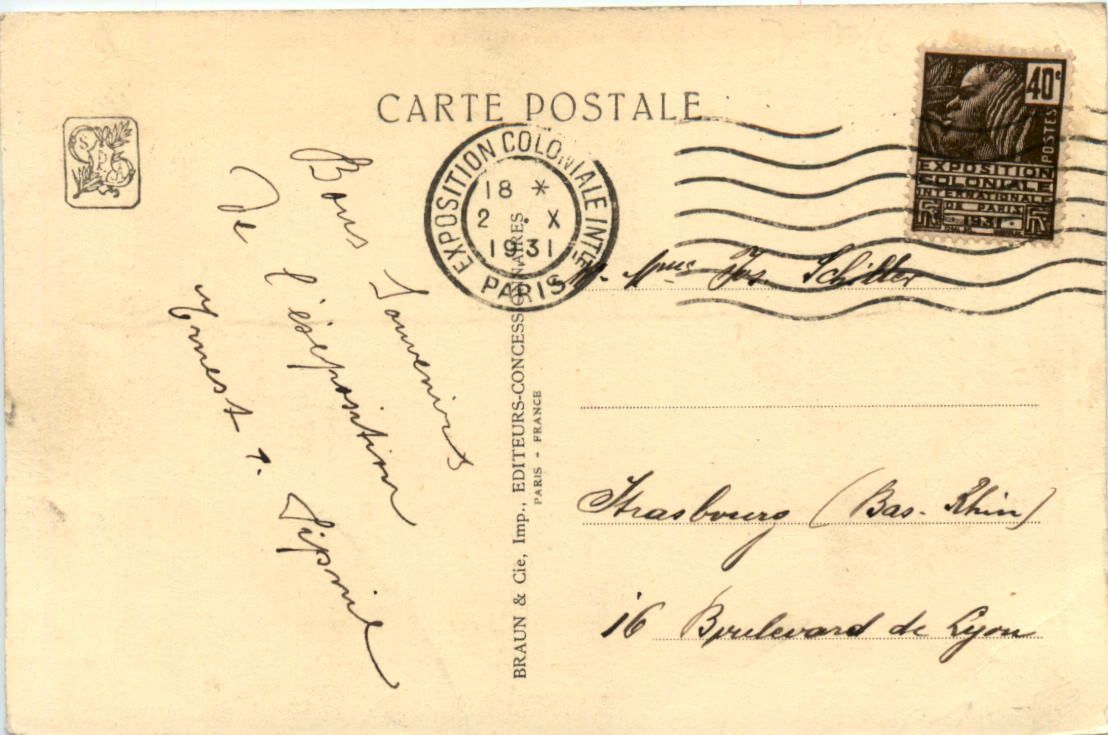 CARTE POSTALE
40c
POSTES
EXPOSITION
COLONIALE
INTERNATIONALE
DE PARIS
1931
EXPOSITION COLONIALE INTLE
18 *
2 . X
1931
PARIS
Bons Souvenirs
de l'exposition
Ernest
BRAUN & Cie, Imp., EDITEURS-CONCESSIONNAIRES
PARIS - FRANCE
Mme Jos Schiller
Strasbourg (Bas-Rhin)
16 Boulevard de Lyon